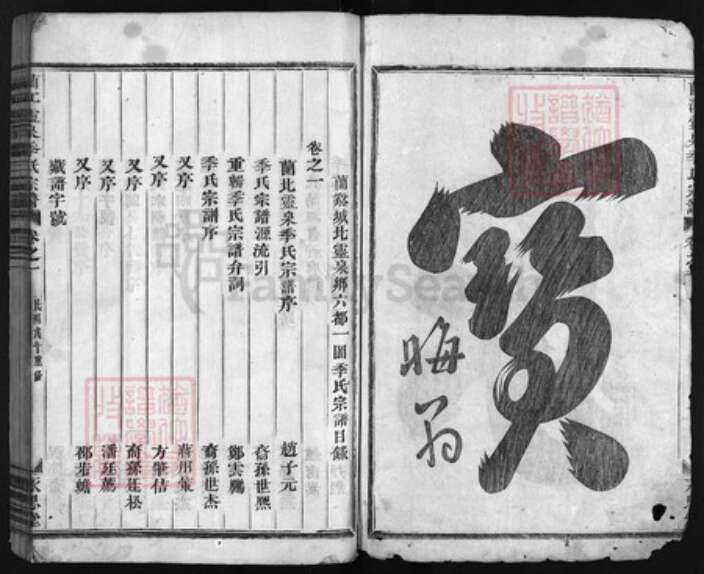 寶
晦翁
蘭谿城北靈泉鄉六都一圖季氏宗譜目錄
卷之一
蘭北靈泉季氏宗譜序 趙子元
季氏宗譜源流引 裔孫世熙
重輯季氏宗譜弁詞 鄭雲鵬
季氏宗譜序 裔孫世杰
又序 蔣用集
又序 方肇佶
又序 裔孫廷松
又序 潘廷蔫
又序
藏譜字號
蘭江靈泉季氏宗譜 卷之一
FamilySearch